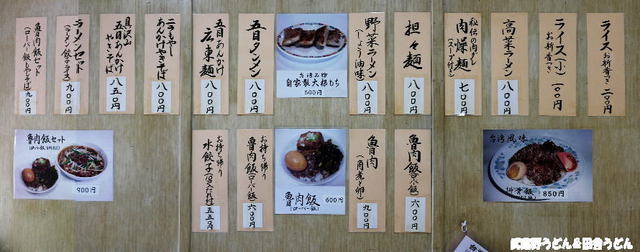 ライス お新香付き 二〇〇円
ライス(小) お新香付き 一〇〇円
高菜ラーメン 八〇〇円
秘伝の肉そぼろ 肉燥麺 (スープ付き) 七〇〇円
担々麺 八〇〇円
野菜ラーメン (しょうゆ味) 八〇〇円
台湾名物
自家製大根もち
500円
五目タンメン 八〇〇円
五目あんかけ 広東麺 八〇〇円
二色もやし あんかけやきそば 八〇〇円
具沢山 五目あんかけ やきそば 八五〇円
ラーメンセット (ラーメン、餃子、ライス) 九〇〇円
魯肉飯セット (ローバー飯、半ラーメン) 九〇〇円
台湾風味
排骨飯
850円
魯肉飯 (ローバー飯) 六〇〇円
魯肉 (角煮、卵) 九〇〇円
魯肉飯
(ローバー飯)
600円
お持ち帰り 魯肉飯 (ローバー飯) 六〇〇円
お持ち帰り 水餃子 五五〇円
魯肉飯セット
900円
武蔵野うどん&田舎うどん